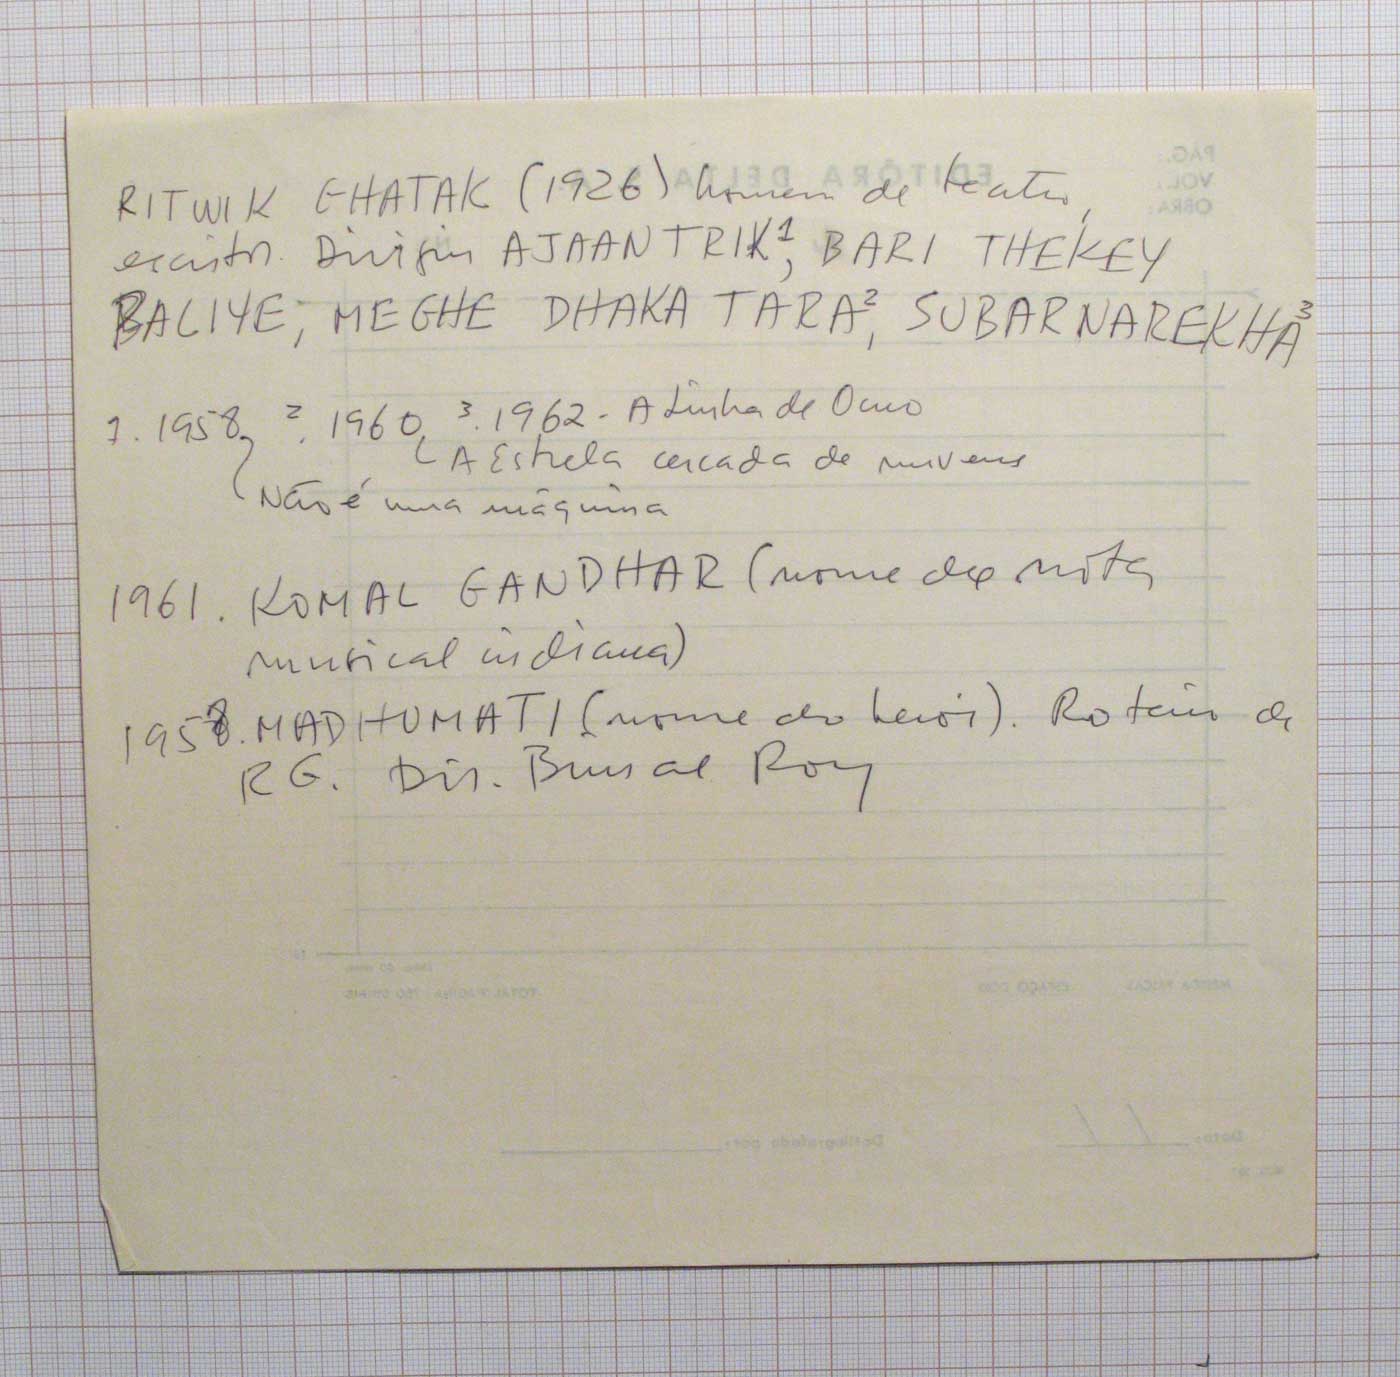 RITWIK GHATAK (1926) homem de teatro,
escritor. Dirigiu AJAANTRIK¹, BARI THEKEY
BALIYE, MEGHE DHAKA TARA², SUBARNAREKHA³
1. 1958, ². 1960, ³. 1962 - A Linha de Ouro
A Estrela cercada de nuvens
Não é uma máquina
1961. KOMAL GANDHAR (nome de nota
musical indiana)
1958. MADHUMATI (nome do herói). Roteiro de
RG. Dir. Bimal Roy
EDITÔRA DELTA
PÁG.:
VOL.:
OBRA:
ESPAÇO
Datilografado por:
Data: